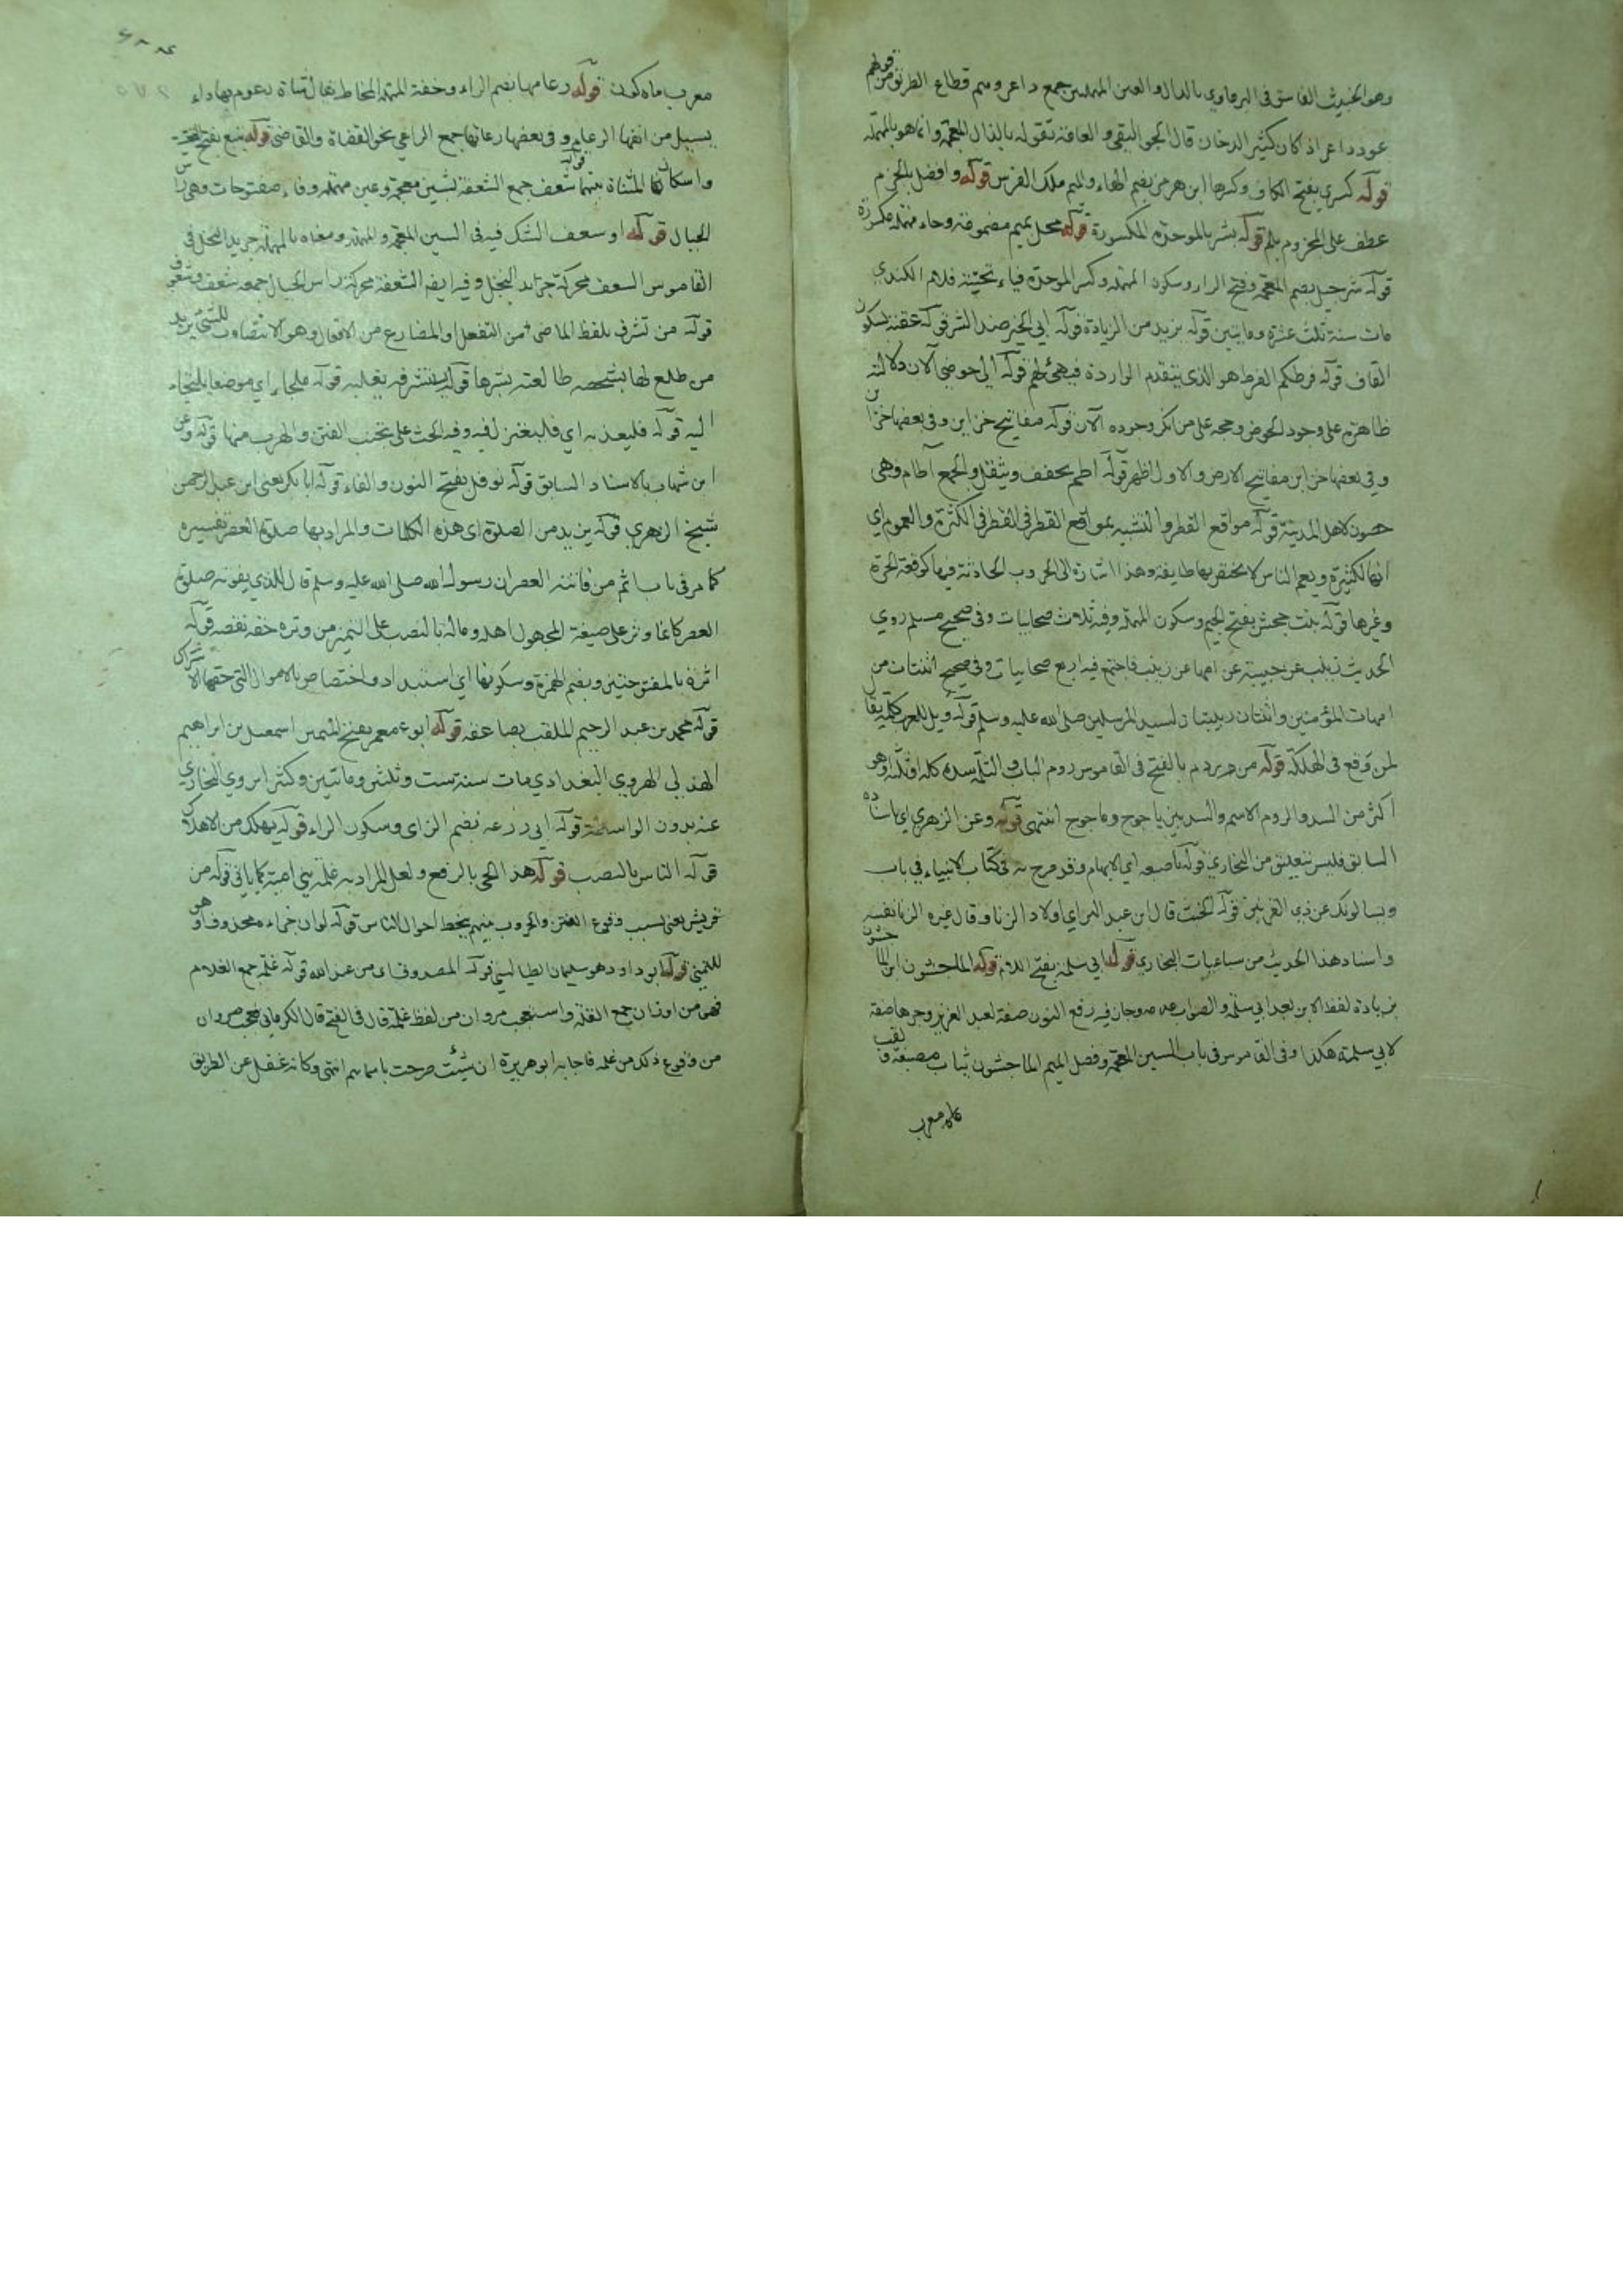 وهو الخبيث الفاسق في البرماوي بالدال والعين المهملتين جمع داعر وهم قطاع الطريق من قولهم
عود داعر اذا كان كثير الدخان قال الجواليقي والعامة تقوله بالذال المعجمة وانما هو بالمهملة
قوله كسرى بفتح الكاف وكسرها ابن هرمز بضم الهاء والميم ملك الفرس قوله وافضل بالجزم
عطف على المجزوم بلم قوله بشر بالموحدة المكسورة قوله محل بميم مضمومة وحاء مهملة مكسورة
قوله شرحبيل بضم المعجمة وفتح الراء وسكون المهملة وكسر الموحدة فياء تحتية فلام الكندي
مات سنة ثلث عشرة ومايتين قوله يزيد من الزيادة قوله ابي الخير ضد الشر قوله عقبة بسكون
القاف قوله فرطكم الفرط هو الذي يتقدم الواردة فيهيئ لهم قوله الى حوضي الآن دلالته
ظاهرة على وجود الحوض وحجة على من انكر وجوده الآن قوله مفاتيح خزاين وفي بعضها خزاين
وفي بعضها خزاين مفاتيح الارض والاول اظهر قوله اطم يخفف ويثقل والجمع آطام وهي
حصون لاهل المدينة قوله مواقع القطر والتشبيه بمواقع القطر في القطر في الكثرة والعموم اي
انها لكثيرة ويعم الناس لا يختص بها طايفة وهذا اشارة الى الحروب الحادثة فيها كوقعة الحرة
وغيرها قوله بنت جحش بفتح الجيم وسكون المهملة وفيه ثلاث صحابيات وفي صحيح مسلم روي
الحديث زينب عن حبيبة عن امها عن زينب فاجتمع فيه اربع صحابيات وفي صحيح اثنتان من
امهات المؤمنين واثنتان ربيبتان لسيد المرسلين صلى الله عليه وسلم قوله ويل للعرب كلمة يقال
لمن وقع في الهلكة قوله من ردم بالفتح في القاموس ردم الباب والثلمة سده كله او ثلثه او هو
اكثر من السد والردم الاسم والسد بين ياجوج وماجوج انتهى قوله وعن الزهري اي باسناده
السابق فليس بتعليق من البخاري قوله باصبعه اي الابهام وقد صرح به في كتاب الانبياء في باب
ويسالونك عن ذي القرنين قوله الخبث قال ابن عبد البر اي اولاد الزنا وقال غيره الزنا نفسه
واسناد هذا الحديث من سباعيات البخاري قوله ابي سلمة بفتح اللام قوله الماجشون ابن الماجشون
بزيادة لفظ الابن بعد ابي سلمة والصواب عدمه وجاز فيه رفع النون صفة لعبد العزيز وجرها صفة
لابي سلمة هكذا وفي القاموس في باب السين المعجمة وفصل الميم الماجشون ثياب مصبغة ولقب
معرب
معرب ماه كون قوله رعامها بضم الراء وخفة المهملة المخاط يقال شاة رعوم بها داء
يسيل من انفها الرعام وفي بعضها رعاتها جمع الراعي نحو القضاة والقاضي قوله يتبع بفتح التحتية
واسكانها المثناة بينهما قوله شعف جمع الشعفة بشين معجمة وعين مهملة وفاء مفتوحات وهي راس
الجبال قوله او سعف الشك فيه في السين المعجمة والمهملة ومعناه بالمهملة جريد النخل في
القاموس السعف محركة جرايد النخل وفيه ايضا الشعفة محركة راس الجبال جمعه شعف وشعوف
قوله من تشرف بلفظ الماضي من التفعل او المضارع من الافعال وهو الانتصاب للشيئ يريد
من طلع لها بشخصه طالعته بشرها قوله تستشرفه يغلبه قوله ملجاء اي موضعا يلتجاء
اليه قوله فليعذ به اي فليعتزل فيه وفيه الحث على تجنب الفتن والهرب منها قوله وعن
ابن شهاب بالاسناد السابق قوله نوفل بفتح النون والفاء قوله ابا بكر يعني ابن عبد الرحمن
شيخ الزهري قوله يزيد من الصلوة اي هذه الكلمات والمراد بها صلوة العصر تفسيره
كما مر في باب اثم من فاتته العصر ان رسول الله صلى الله عليه وسلم قال للذي يفوته صلوة
العصر كانما وتر على صيغة المجهول اهله وماله بالنصب على التميز من وتره حقه نقصه قوله
اثرة بالمفتوحتين وبضم الهمزة وسكونها اي استبداد واختصاص بالاموال التي حقها الاشتراك
قوله محمد بن عبد الرحيم الملقب بصاعقة قوله ابو معمر بفتح الميمين اسمعيل بن ابراهيم
الهذلي الهروي البغدادي مات سنة ست وثلثين ومائتين وكثيرا يروي البخاري
عنه بدون الواسطة قوله ابي زرعة بضم الزاي وسكون الراء قوله يهلك من الاهلاك
قوله الناس بالنصب قوله هذا الحي بالرفع ولعل المراد به غلمة بني امية كما ياتي قوله من
قريش يعني بسبب وقوع الفتن والحروب بينهم يخبط احوال الناس قوله لو ان جزاءه محذوف او هو
للتمني قوله ابو داود هو سليمان الطيالسي قوله المصدوق اي من عند الله قوله غلمة جمع الغلام
فهي من اوزان جمع القلة واستعجب مروان من لفظ غلمة قال في الفتح قال الكرماني تعجب مروان
من وقوع ذلك من غلمة فاجابه ابو هريرة ان شيئت صرحت باسمايهم انتهى وكانه غفل عن الطريق